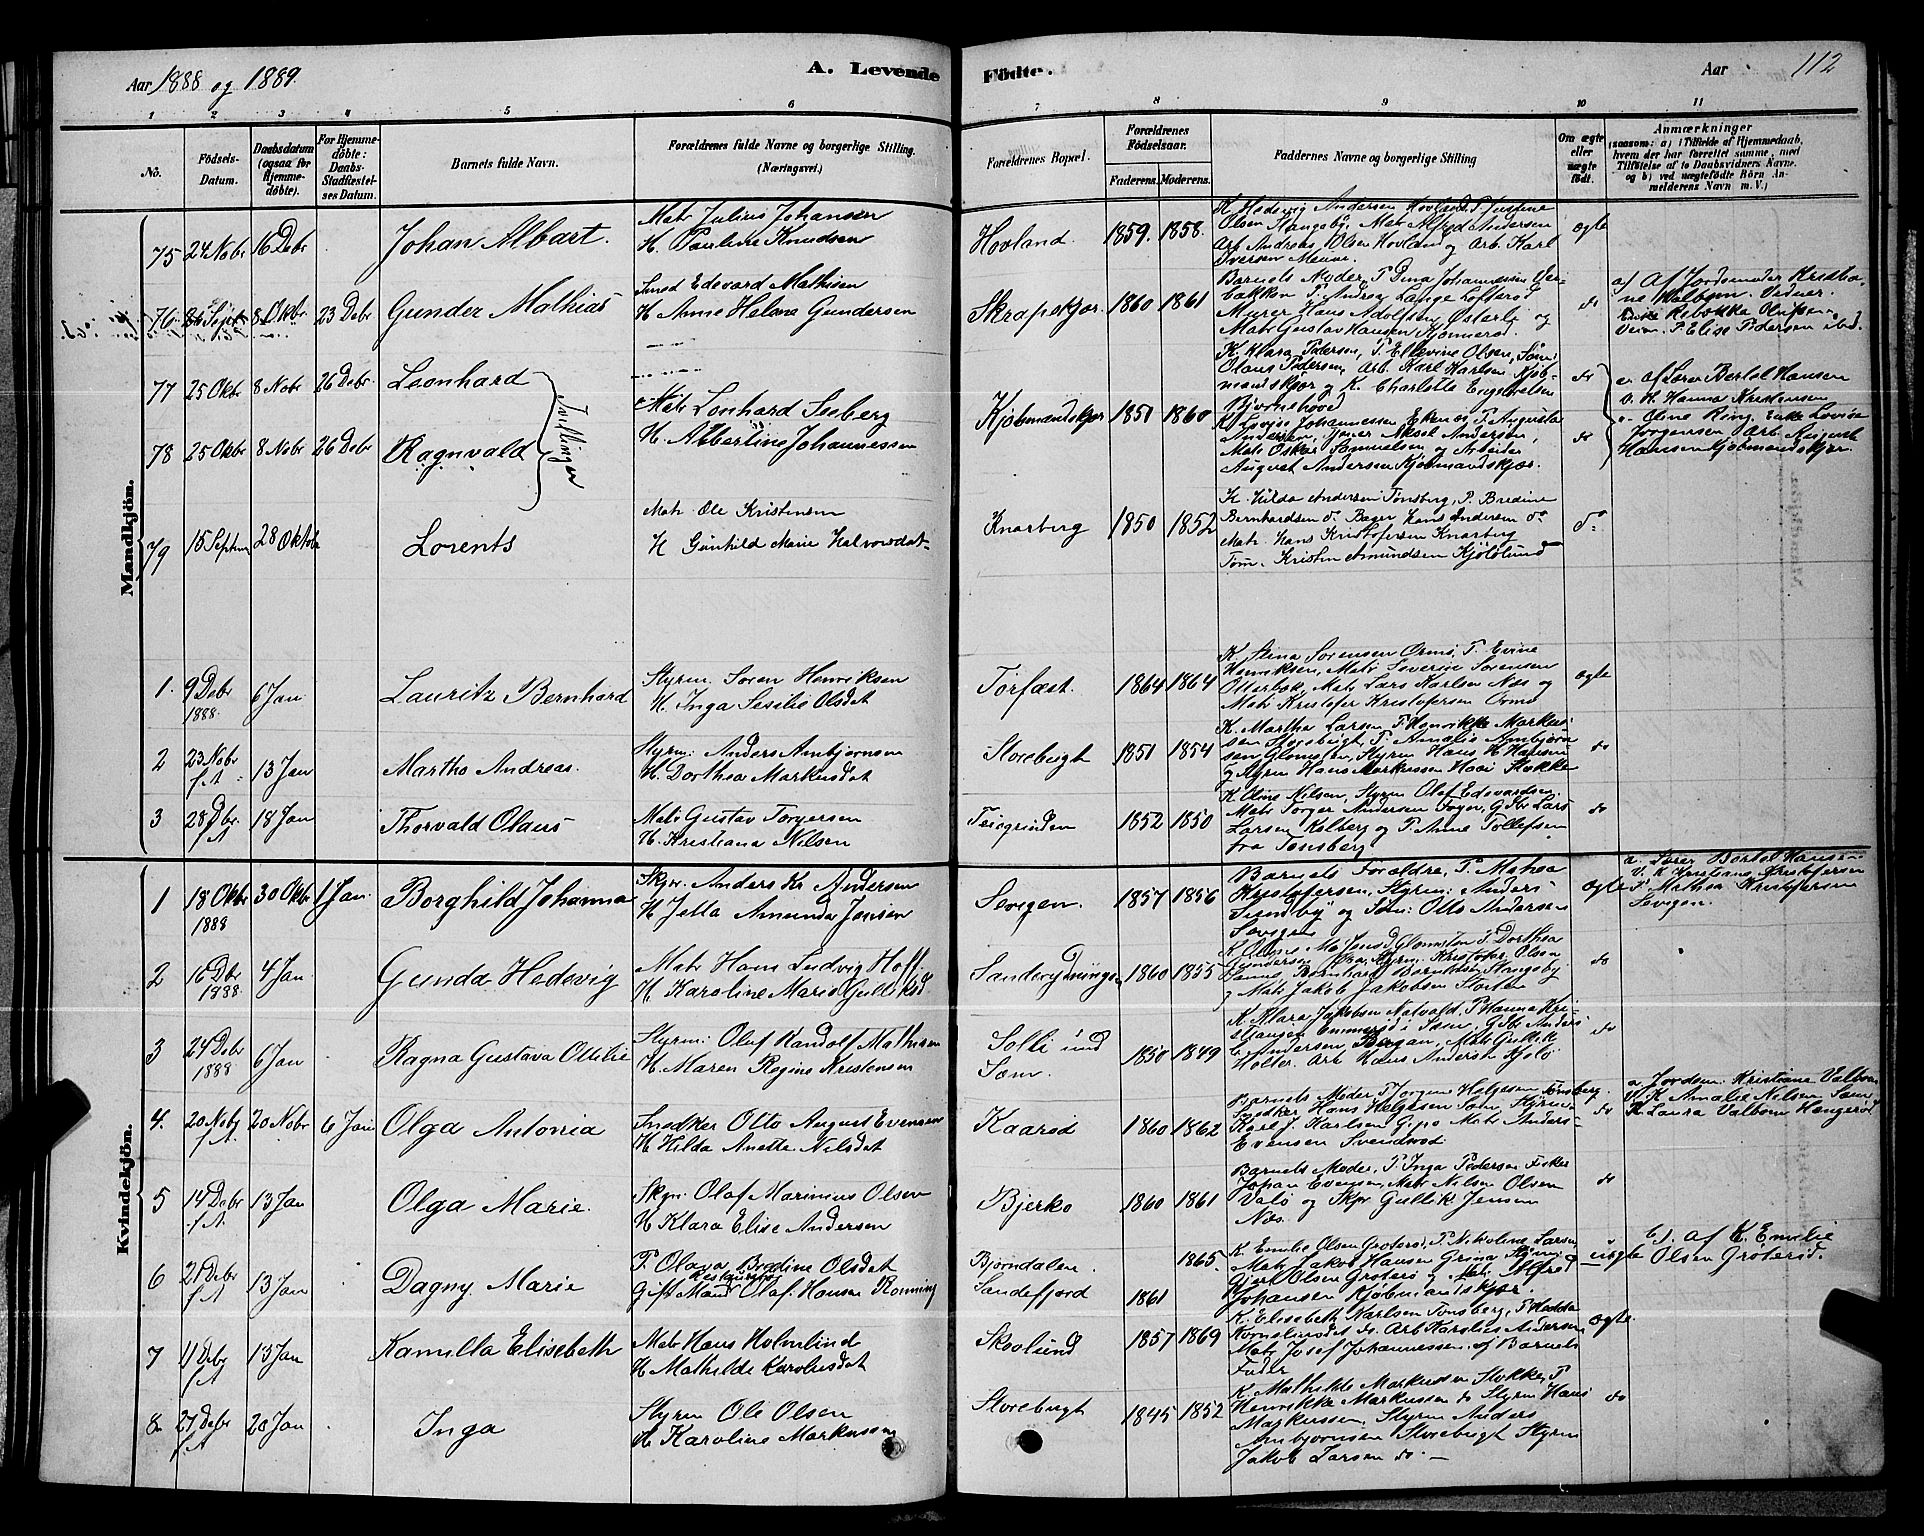 Aar 1888 og 1889.
A. Levende Fødte.
Aar
112
1 2 3 4 5 6 7 8 9 10 11
No.
Födsels-Datum.
Daabsdatum (ogsaa for Hjemmedöbte).
For Hjemmedöbte: Daabs-Stadfæstelses Datum.
Barnets fulde Navn.
Forældrenes fulde Navne og borgerlige Stilling. (Næringsvei.)
Forældrenes Bopæl.
Forældrenes Födselsaar.
Faderens. Moderens.
Faddernes Navne og borgerlige Stilling
Om ægte eller uægte födt.
Anmærkninger
(saasom: a) i Tilfælde af Hjemmedaab, hvem der har forrettet samme, med Tilföielse af to Daabsvidners Navne, og b) ved uægtefödte Börn Anmelderens Navn m. V.)
Mandkjön.
75 24 Nobr 16 Debr Johan Albart.
Matr Julius Johansen
H. Pauline Knudsen
Hovland. 1859. 1858.
K. Hedevig Andersen Hovland, P. Justine
Olsen Stangeby, Matr Alfred Andersen
Arb Andreas Olsen Hovland og Arb Karl
Iversen
ægte
76 Sept 8 Oktbr 23 Debr Gunder Mathias
Smed Edevard Mathisen
H Anne Helene Gundersen
Skrapekjær 1860 1861
Barnets Moder, P Dina Johannessen
bakken P. Andrea Lange Lofterød
Murer Hans Adolfsen Østerli og
Matr Gustav Hansen
do
a) Af Jordemoder Kristia-
ne Valbom. Vidner.
Enke Rebekka Olufsen,
P Elise Pedersen ibd.
77 25 Okbr 8 Nobr 26 Debr Leonhard
78 25 Okbr 8 Nobr 26 Debr Ragnvald
Tvillinger
Matr Lonhard Seeberg
H. Albertine Johannessen
Kjøbmandskjær 1851 1860
K. Klara Petersen, P. Ellevine Olsen, Søm:
Olaus Pedersen, Arb. Karl Karlsen Kjøb-
mandskjær og K. Charlotte Engebretsen
Bjørnehove
K Lovise Johannessen Ekenes, P. Augusta
Andersen, Aksel Andersen,
Matr Oskar Samuelsen og Arbeider
August Andersen Kjøbmandskjær.
do
do
a. af Lærer Bertel Hansen
v. K Hanna Kristensen
Oline Ring, Enke Lovise
Jørgensen og Arb.
Hansen Kjøbmandskjær.
79 15 Septm 28 Oktobr Lorents
Matr. Ole Kristensen
H Gunhild Marie Halvorsdat-
Knarberg 1850 1852
K. Hilda Andersen Tønsberg, P. Bredine
Bernhardsen do Bager Hans Andersen do
Matr. Hans Kristofersen Knarberg
Tøm. Kristen Amundsen Kjølølund
do
1. 9 Debr 1888. 6 Jan Lauritz Bernhard
Styrm. Søren Henriksen
H. Inga Sesilie Olsdat
Torfæst. 1864 1864
K Stina Sørensen Ormø, P. Evine
Henriksen, Matr Severin Sørensen
Otterbæk, Matr Lars Karlsen Næs og
Matr Kristofer Kristofersen Ormø
ægte
2 23 Nobr f. A 13 Jan Martha Andrea.
Styrm: Anders Arnbjørnsen
H. Dorthea Markusdat
Storebugt 1851 1854
K. Martha Larsen, P. Henrikke Markus-
sen Storebugt, P. Amalie Arnbjørn
sen Glomsten, Styrm Hans H Hansen
og Styrm Hans Markussen Stokke
do
3 28 Dbr. f A 18 Jan Thorvald Olaus
Matr Gustav Torgersen
H. Kristiana Nilsen
Teiegrinden 1852 1850
K Oline Nilsen, Styrm Olaf Edevardsen
Matr Torger Andersen, Gdbr Lars
Larsen Kolberg og P. Anne Tollefsen
fra Tønsberg
do
Kvindekjön.
1 18 Okbr 1888 30 Okbr 1 Jan. Borghild Johanna
Skpr. Anders Kr Andersen
H Jella Amunda Jensen
Sevigen. 1857 1856
Barnets Forældre, P. Mathea
Kristofersen, Styrm: Anders
Sundby og Søm: Otto Andersen
Sevigen
ægte
a. Lærer Bertel Hansen
V. K Kristiane Kristofersen
P Mathea Kristofersen
Sevigen.
2 16 Dbr 1888. 4 Jan Gunda Hedevig
Matr Hans Ludvig Hoff
H Karoline Marie
Sanderydningen 1860 1855
K Oline M Jensd Glomsten P. Dorthea
Gundersen, Styrm: Kristofer Olsen
Bernhard Berntsen Stangeby
og Matr Jakob Jakobsen
do
3 24 Debr 1888 6 Jan Ragna Gustava Ottilie
Styrm: Oluf Randolf Mathisen
H. Maren Regine Kristensen
Solli und Sæm. 1850 1849
K Klara Jakobsen Natvald, P Hanna Kri-
stiansen i Sæm, Gdbr Anders
Andersen Matr Gullik
Holter Arb Hans Andersen Kjølø
do
4. 20 Nobr f A 20 Nobr 6 Jan Olga Antonia
Snedker Otto August Evensen
H Hilda Anette Nilsdat
Kaarød 1860 1862
Barnets Moder P Jørgine Helgesen Tønsberg.
Snedker Hans Helgesen Søm, Styrm.
Karl J. Karlsen Gipø Matr Anders
Evensen Svendsrød
do
a. Jordem: Kristiane Valbom
V. K Amalie Nilsen Sæm
K Laura Valbom Haugerød
5 14 Debr f. A 13 Jan Olga Marie.
Skpr: Olaf Marinius Olsen
H Klara Elise Andersen
Bjerkø 1860 1861
Barnets Moder, P. Inga Pedersen Fisker
Johan Evensen, Matr Nilsen Olsen
Valø og Skpr Gullik Jensen
Næs.
do
6 21 Debr f A 13 Jan Dagny Marie
P. Olava Bredine Olsdat
Gift Mand Olaf. Hansen Rønning
Bjørndalen. 1865.
Sandefjord 1861
K. Emilie Olsen Groterød, P. Nikoline Larsen
Matr Jakob Hansen Grina Styrm:
Gjert Olsen Groterø og Matr: Alfred
Johansen Kjøbmandskjær.
uægte
b). af K. Emilie
Olsen Groterød.
7 11 Debr f A 13 Jan Kamilla Elisebeth
Matr Hans Holmlund
H Mathilde Karoliusdat
Skovlund 1857 1869
K. Elisebeth Karlsen Tønsberg, P Hedda
Korneliusdat do. Arb Karolius Andersen
Matr Josef Johannessen og Barnets
Fader
ægte.
8 27 Debr f A 20 Jan Inga
Styrm Ole Olsen
H Karoline Markussen
Storebugt 1845 1852
K. Mathilde Markussen Stokke, P.
Henrikke Markussen do Styrm Hans
Markussen, Styrm Anders
Arnbjørnsen Storebugt Styrm
Jakob Larsen do. —
do